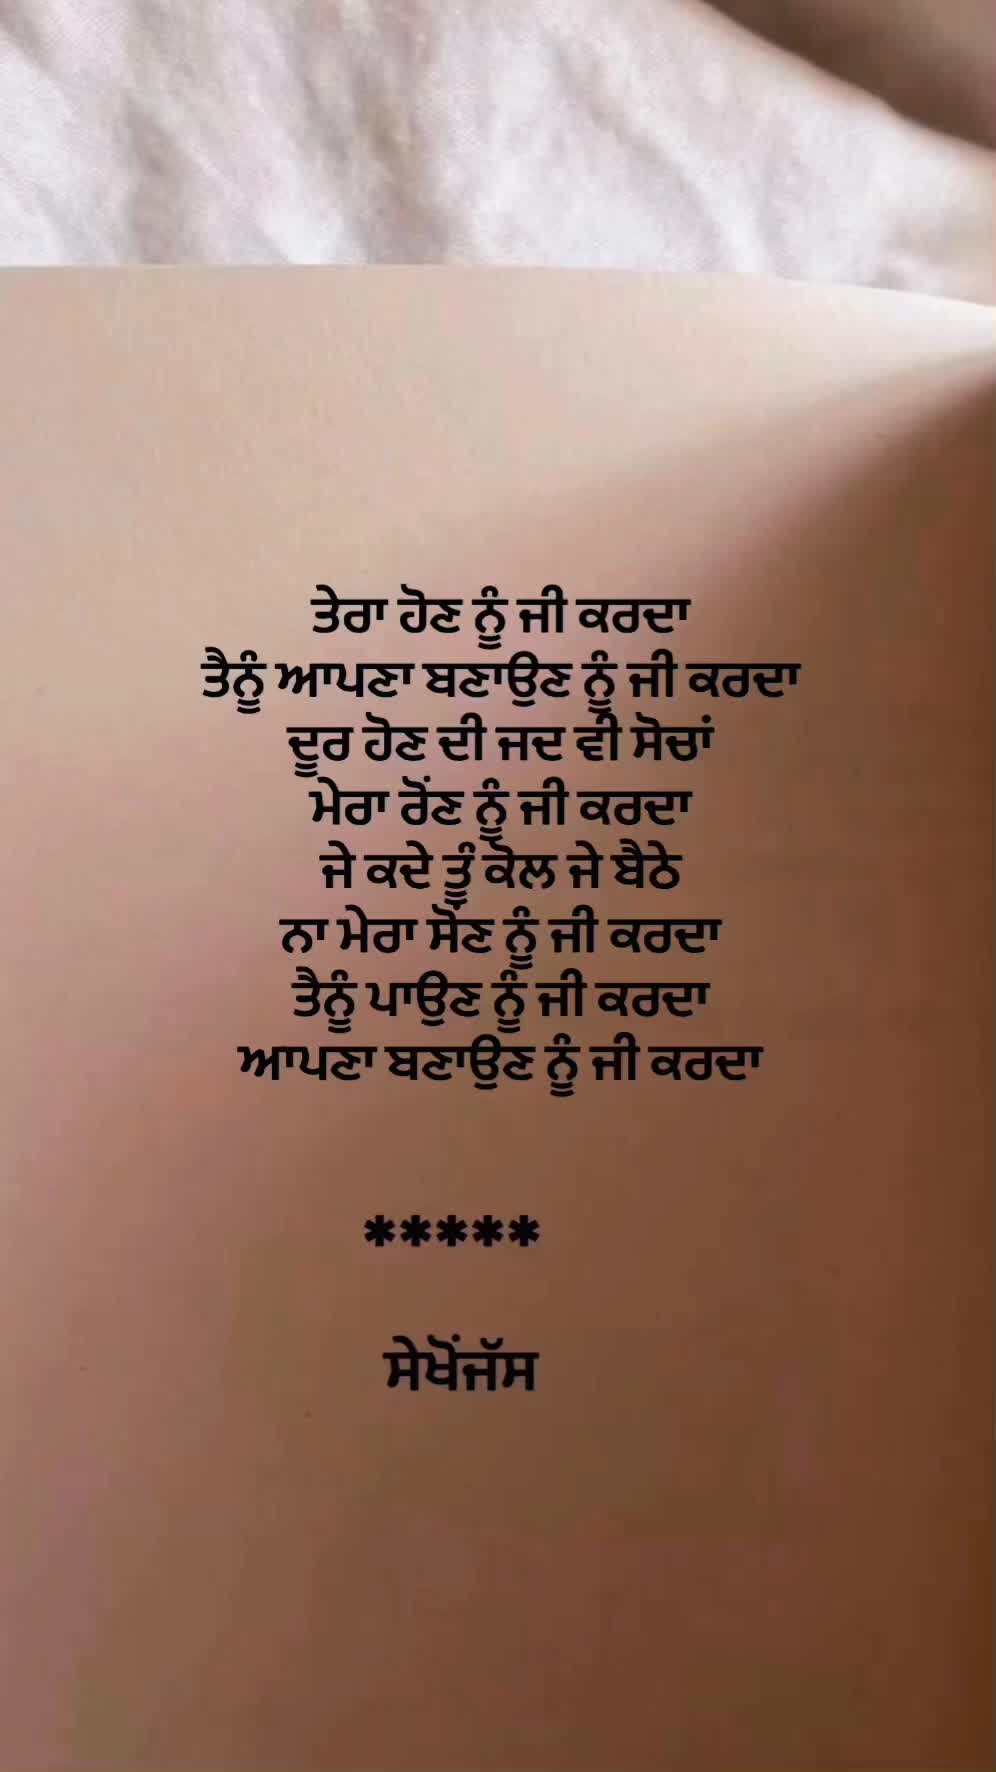 ਤੇਰਾ ਹੋਣ ਨੂੰ ਜੀ ਕਰਦਾ
ਤੈਨੂੰ ਆਪਣਾ ਬਣਾਉਣ ਨੂੰ ਜੀ ਕਰਦਾ
ਦੂਰ ਹੋਣ ਦੀ ਜਦ ਵੀ ਸੋਚਾਂ
ਮੇਰਾ ਰੋਂਣ ਨੂੰ ਜੀ ਕਰਦਾ
ਜੇ ਕਦੇ ਤੂੰ ਕੋਲ ਜੇ ਬੈਠੇ
ਨਾ ਮੇਰਾ ਸੋਂਣ ਨੂੰ ਜੀ ਕਰਦਾ
ਤੈਨੂੰ ਪਾਉਣ ਨੂੰ ਜੀ ਕਰਦਾ
ਆਪਣਾ ਬਣਾਉਣ ਨੂੰ ਜੀ ਕਰਦਾ
*****
ਸੇਖੋਂਜੱਸ